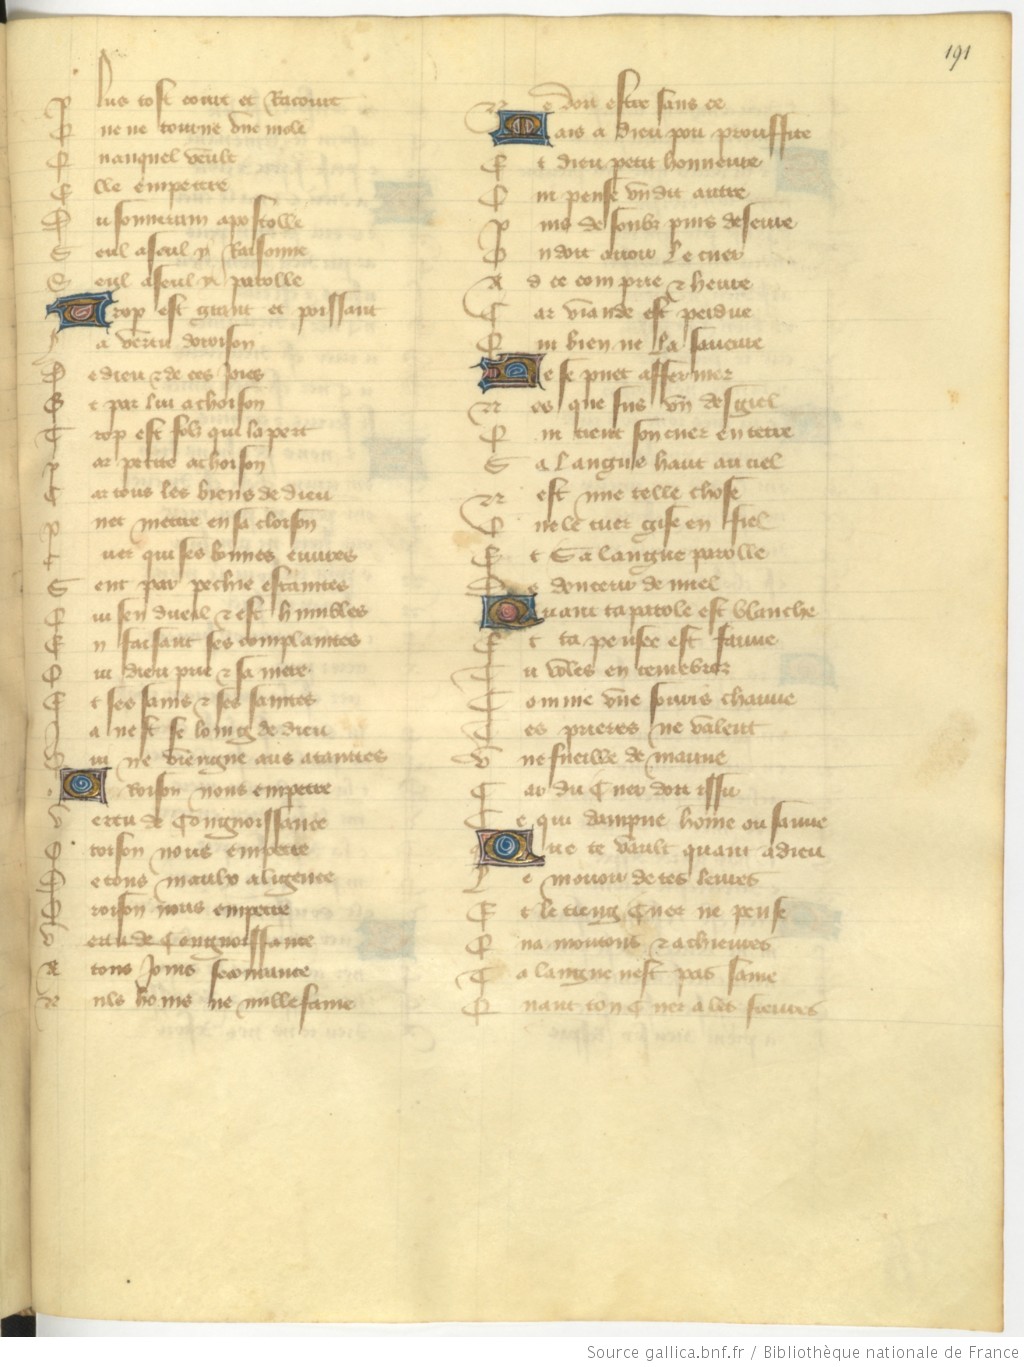 191
Plus tost court et Racourt
Que ne tourne une mole
Quanquel veult
Elle empettre
Du sommium apostolle
Seul a seul y Raisonne
Seul a seul y parolle
Trop est grant et poissant
La vertu doroison
De dieu et de ces Joies
Et par lui achoison
Trop est folz qui la pert
Par petite achoison
Car tous les biens de dieu
Puet mettre en sa cloison
Cuer qui ses bonnes euures
Sent par pechie estaintes
Qui sen dueil et est humbles
En faisant ses complaintes
Qui dieu prie et sa mere
Et ses sains et ses saintes
Ja nest se loing de dieu
Qui ne viengne aus ataintes
Oroison nous empettre
Vertu de Congnoissance
Oroison nous empettre
De tous maulx aligence
Oroison nous empettre
Vertu de Congnoissance
A tous Jours
Nuls homs ne nulle fame
Ne doit estre sans ce
Mais a dieu pou prouffite
Et dieu petit honneure
Qui pense vn dit autre
Puis desoubz puis deseure
On doit auoir Le cuer
A ce com prie et heure
Car viande est perdue
Qui bien ne La saueure
Ne se puet affermer
Nes que sus vn desgiel
Qui tient son cuer en terre
Sa Langue haut au ciel
Nest mie telle chose
Que le cuer gise en fiel
Et Sa langue parolle
De douceur de miel
Quant ta parole est blanche
Et ta pensee est fauue
Tu voles en tenebror
Comme vne souris chauue
Tes prieres ne valent
Vne fueille de mauue
Car du Cuer doit issir
Ce qui dampne home ou sauue
Que te vault quant a dieu
Le mouuoir de tes leures
Et le tieng Cuer ne pense
Qua moutons et a chieures
Ta langue nest pas saine
Quant ton Cuer a les fieures
Source gallica.bnf.fr / Bibliothèque nationale de France